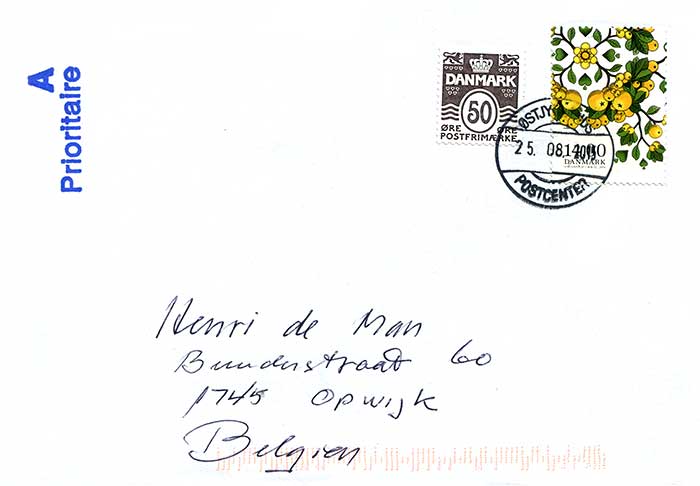 A
Prioritaire
DANMARK
50
ØRE ØRE
POSTFRIMÆRKE
DANMARK
25. 08. 2015
POSTCENTER
Henri de Man
Bunderstraat 60
1745 Opwijk
Belgien